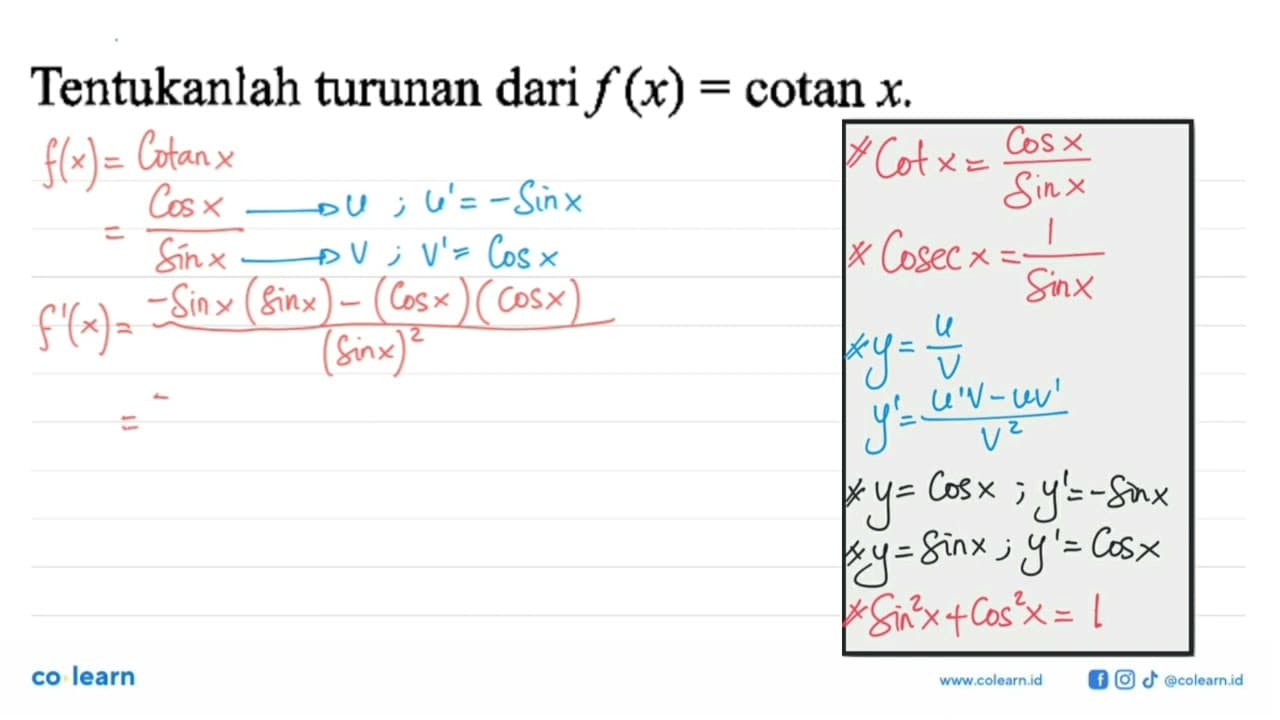 Tentukanlah turunan dari f(x) = cotan x.
f(x) = Cotan x
= Cos x / Sin x → u ; u' = -Sin x
→ v ; v' = Cos x
f'(x) = -Sin x (Sin x) - (Cos x)(Cos x) / (Sin x)²
= -
* Cot x = Cos x / Sin x
* Cosec x = 1 / Sin x
* y = u / v
y' = u'v - uv' / v²
* y = Cos x ; y' = -Sin x
* y = Sin x ; y' = Cos x
* Sin²x + Cos²x = 1
co learn
www.colearn.id
@colearn.id